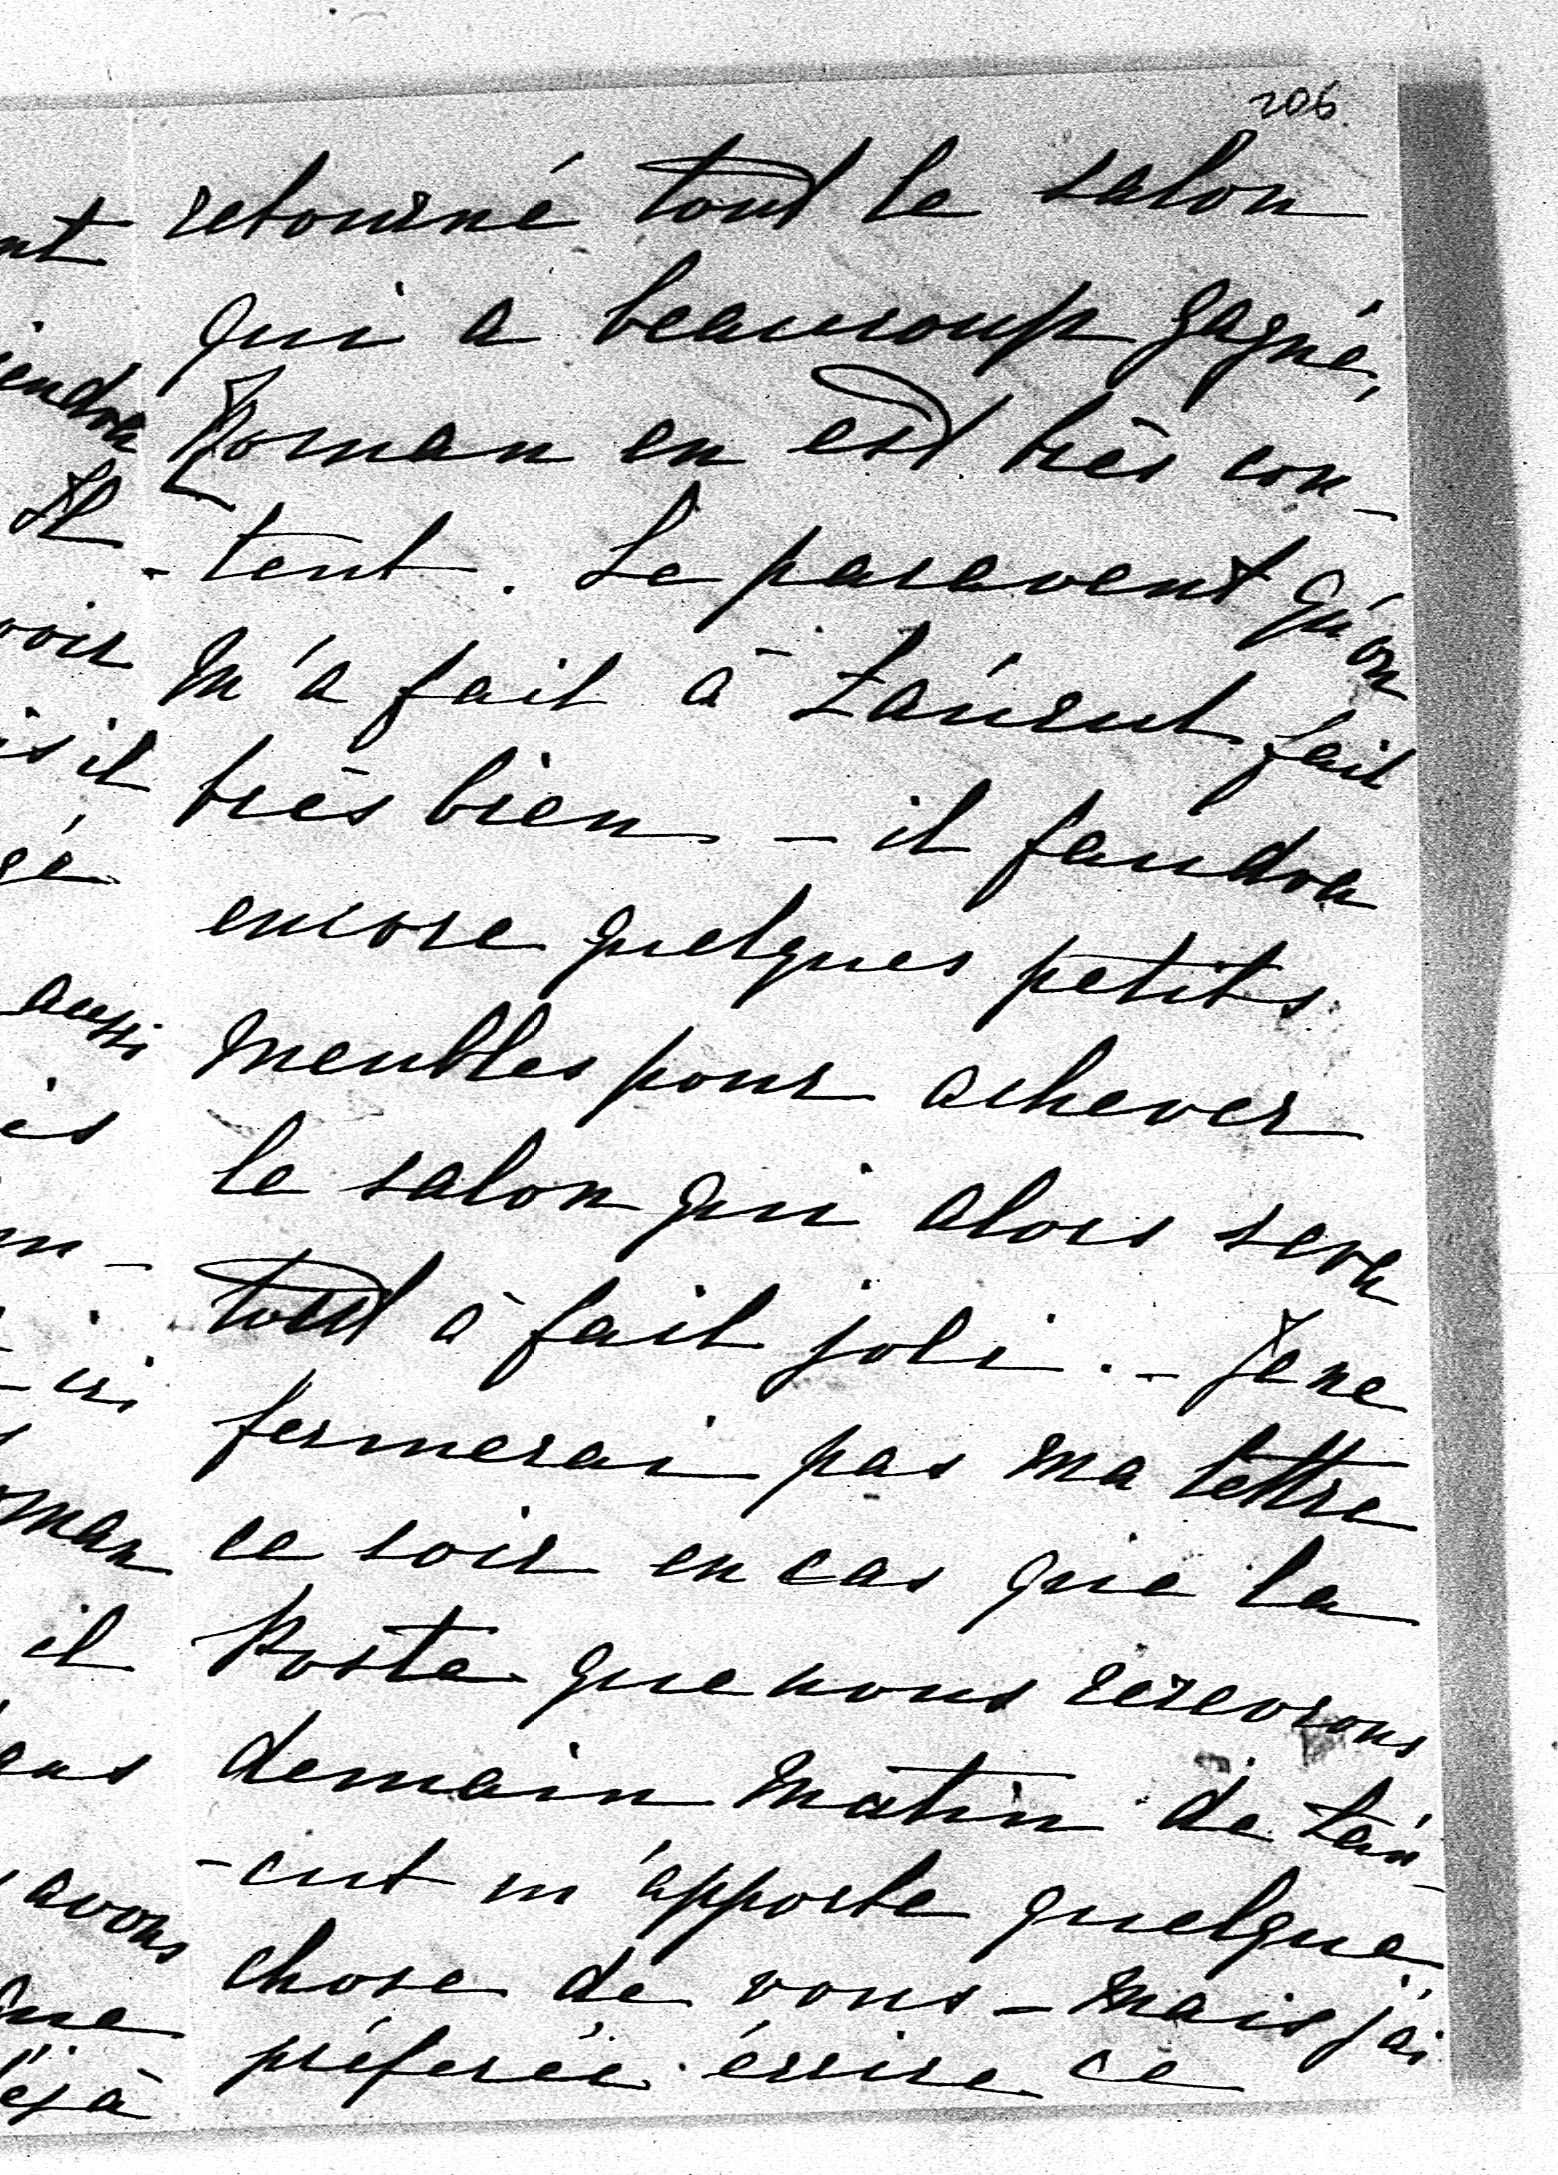 206.
retourné tout le salon
qui a beaucoup gagné,
Roman en est très con-
-tent. Le paravent qu'on
m'a fait à Łańcut fait
très bien - il faudra
encore quelques petits
meubles pour achever
le salon qui alors sera
tout à fait joli. - Je ne
fermerai pas ma lettre
ce soir en cas que la
Poste que nous recevrons
demain matin de Łań-
-cut m'apporte quelque
chose de vous - mais j'ai
préferée écrire ce
nt
iendra
Il
voir
is il
gé
aussi
is
on-
ici
oman
il
ens
avons
ême
déjà